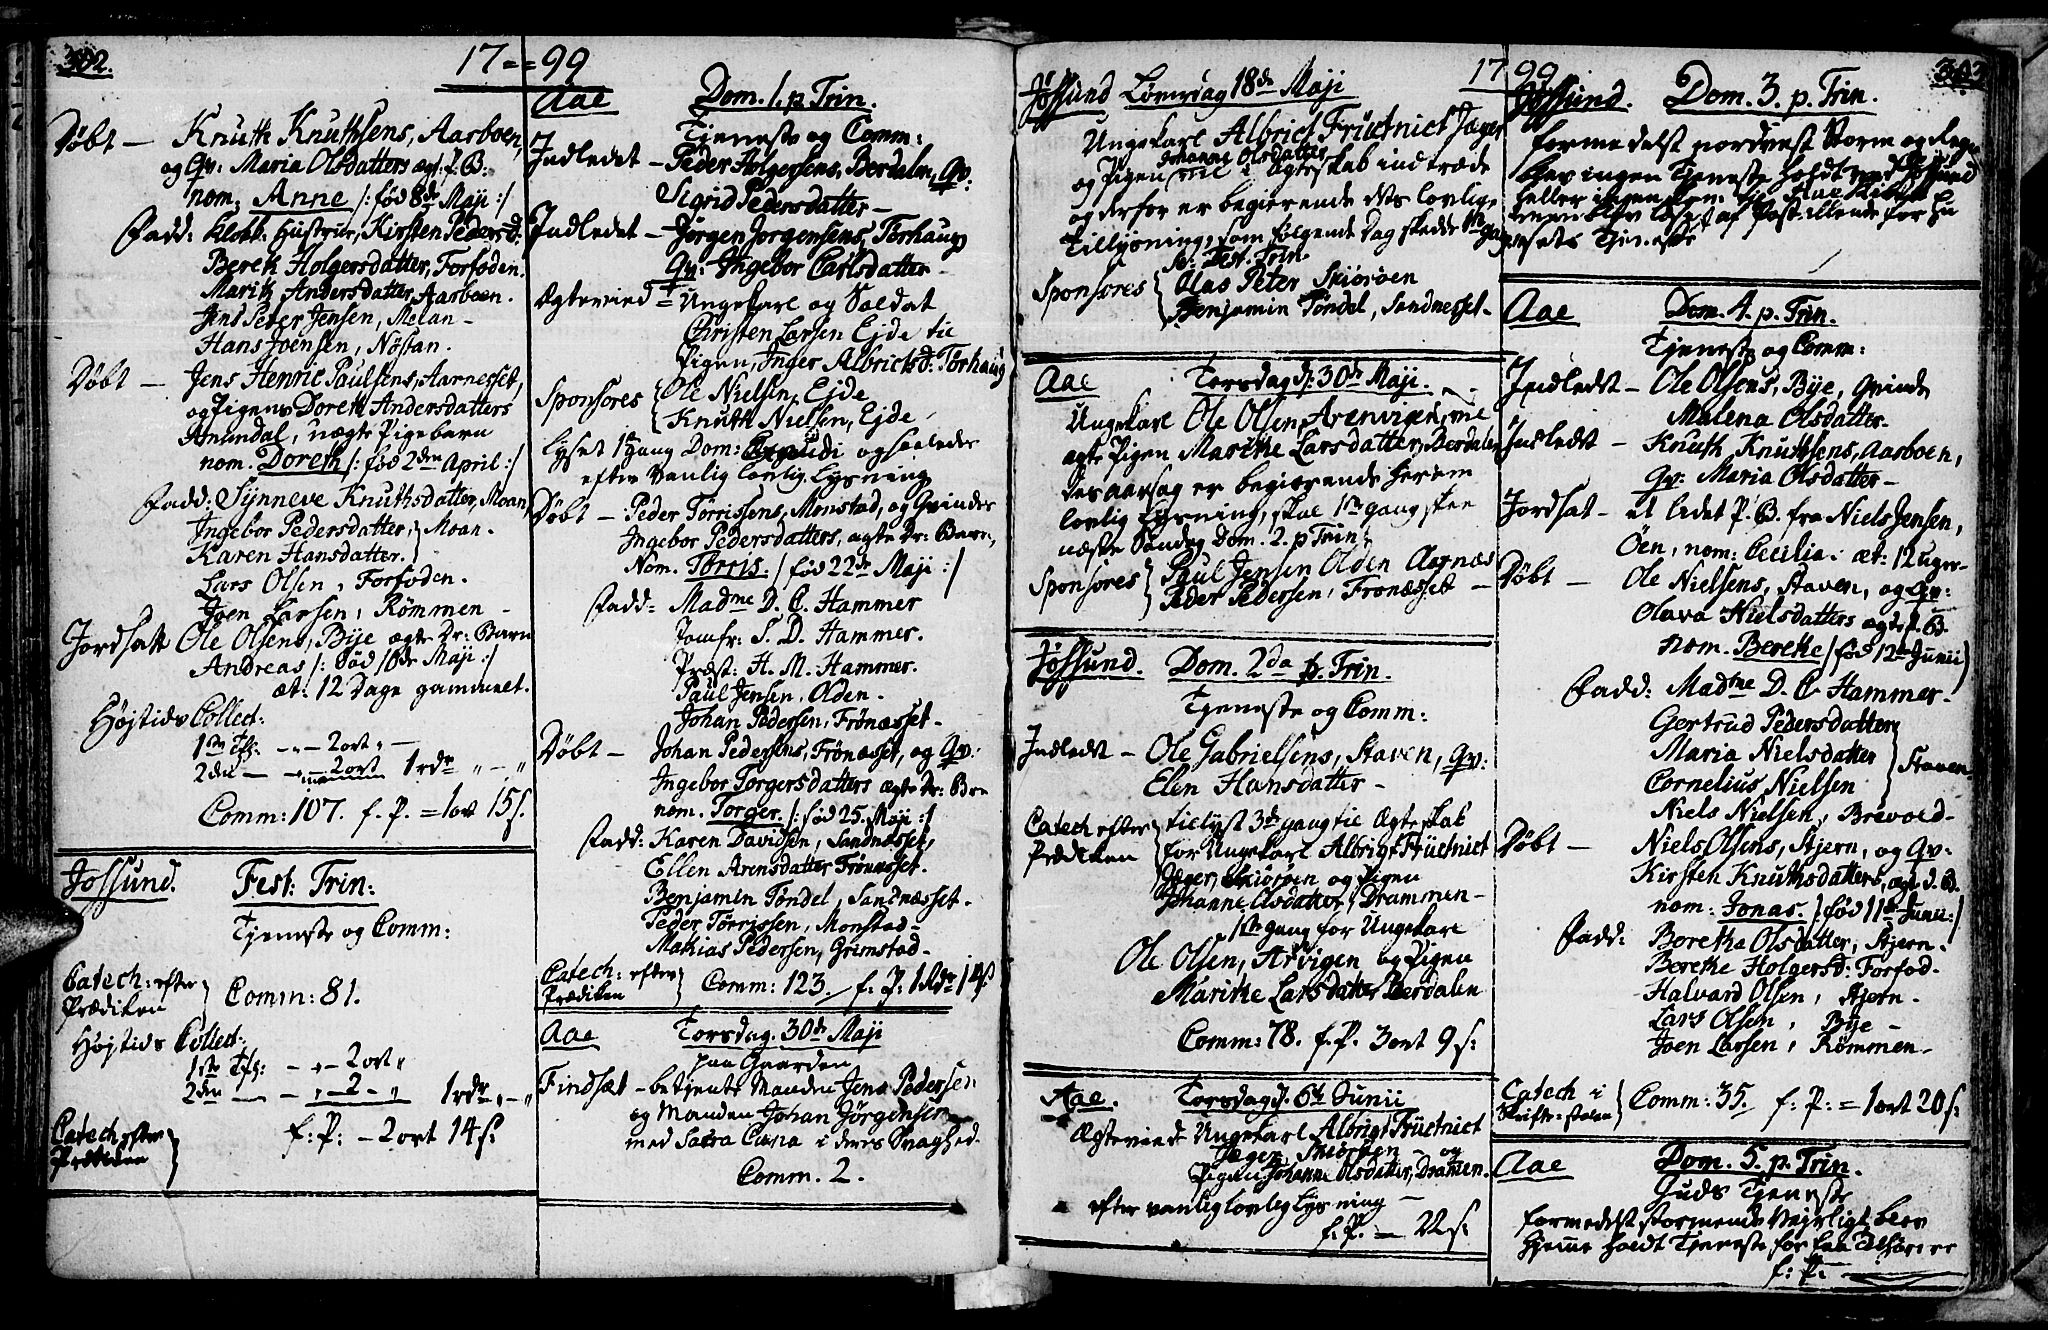 302.
17=99
Døbt — Knuth Knuthsens, Aarboen,
og Qv: Maria Olsdatters ægt: P. B:
nom. Anne /: fød 8de Maji :/
Fadd: Klokk: Hustrue, Kirsten Pedersd:
Bereth Holgersdatter, Forfoden.
Marith Andersdatter, Aarboen.
Jens Peter Jensen, Melan –
Hans Joensen, Nøstan.
Døbt — Jens Henric Paulsens, Aarnesset,
og Pigens Doreth Andersdatters
Amundal, uægte Pigebarn
nom. Doreth /: fød 2den April :/
Fadd: Synneve Knuthsdatter, Moan,
Ingebor Pedersdatter,
Karen Hansdatter. } Moan.
Lars Olsen, Forfoden.
Joen Larsen, Rømmen –
Jordsatt Ole Olsens, Bye ægte Dr: Barn
Andreas /: fød 16de Maji :/
æt: 12 Dage gammelt.
Højtids Collect:
1ste Tfl: – „ – 2 ort „ –
2den — – „ – 2 ort 1 rdr „ – „
Comm: 107. f. P. = 1 ort 15 s.
Jøssund. Fest: Trin:
Tjeneste og Comm:
Catech: efter
Prædiken } Comm: 81.
Højtids Collect:
1ste Tfl: – „ – 2 ort „
2den — – „ – 2 – „ 1 rdr „ – „
Catech efter
Prædiken } f: P: – 2 ort 14 s.
Aae Dom. 1. p. Trin.
Tjeneste og Comm:
Indledet – Peder Holgersens, Berdalen, Qv:
Sigrid Pedersdatter –
Indledet – Jørgen Jørgensens, Torhaug
Qv: Ingebor Carlsdatter –
Ægtevied = Ungekarl og Soldat
Christen Larsen Ejde til
Pigen, Inger Albrictsd: Tørhaug
Sponsores { Ole Nielsen, Ejde
Knuth Nielsen, Ejde
lyset 1ste gang Dom: Exaudi og saaledes
efter vanlig lovlig lysning
Døbt – Peder Tørrissens, Monstad, og Qvindes
Ingebor Pedersdatters, ægte Dr: Barn,
Nom. Tørris. /: fød 22de Maji :/
Fadd: Madme D. C. Hammer
Jomfr: S. D. Hammer.
Præst: H. M. Hammer.
Paul Jensen, Olden.
Johan Pedersen, Frønesset.
Døbt – Johan Pedersens, Frønæsset, og Qv:
Ingebor Torgersdatters ægte Dr: Brn
nom. Torger. /: fød 25. Maji :/
Fadd: Karen Davidsen, Sandnæsset,
Ellen Arensdatter Frønæsset.
Benjamin Tøndel, Sandnæsset.
Peder Tørrissen, Monstad –
Mathias Pedersen, Grimstad –
Catech: efter
Prædiken } Comm: 123. f. P: 1 Rdr 14 s
Aae Torsdag. 30de Maji
paa Gaarden
Findsæt – betjente Manden Jens Pedersen
og Manden Johan Jørgensen
med Sacra Cæna i deres Svaghed.
Comm. 2.
1799
303
Jøssund Løverdag 18de Maji
Ungekarl Albrict Früctnict Jæger
og Pigen Johanne Olsdatter vil i Ægteskab indtræde
og derfor er begierende des lovlige
Tillysning, som følgende Dag skedde 1ste gang
se: Fest. Trin.
Sponsores { Olas Peter Skiørøen
Benjamin Tøndel, Sandnesset –
Aae Torsdag d: 30de Maji.
Ungekarl Ole Olsen Arenvigen, vil
ægte Pigen Marithe Larsdatter, Berdalen
des aarsag er begierende herom
lovlig lysning, skal 1ste gang skee
næste Søndag Dom. 2. p Trin:
Sponsores } Paul Jensen Olden Aarnæs
Peder Pedersen, Fronæsset –
Jøssund. Dom. 2da p. Trin.
Tjeneste og Comm:
Indledt – Ole Gabrielsens, Staven, Qv:
Elen Hansdatter –
Catech efter
Prædiken } tillyst 3de gang til Ægteskab
for Ungekarl Albrigt Früctnict
Jæger, Skiørøen og Pigen
Johanne Olsdatter, Drammen –
1ste Gang for Ungekarl
Ole Olsen, Arvigen og Pigen
Marithe Larsdatter Berdalen
Comm: 78. f. P. 3 ort 9 s:
Aae. Torsdag d. 6te Junii
Ægteviede Ungekarl Albrigt Früctnict
Jæger Skiørøen – og
Pigen Johanne Olsdatter, Dramen.
efter vanlig lovlig lysning –
f. P. – 22 s:
Jøssund. Dom. 3. p. Trin.
formedelst nordvest Storm og Regn
blev ingen Tjeneste holdt ved Jøssund
heller ingen kom til Aae Kirke
men blev læst af Postillende for
Husets Tjeneste
Aae Dom. 4. p. Trin.
Tjeneste og Comm:
Indledt – Ole Olsens, Bye, Qvinde
Malena Olsdatter.
Indledt – Knuth Knuthsens, Aarboen,
Qv: Maria Olsdatter –
Jordsat – et ledet P. B. fra Niels Jensen,
Öen, nom: Cecilia. æt: 12 Uger –
Døbt – Ole Nielsens, Staven, og Qv:
Olava Nielsdatters ægte P. B.
nom. Berethe /: fød 12te Junii
Fadd: Madme D. C. Hammer –
Gertrud Pedersdatter
Maria Nielsdatter
Cornelius Nielsen } Staven
Niels Nielsen, Brevold –
Døbt – Niels Olsens, Stjern, og Qv:
Kirsten Knuthsdatters, ægte d. B.
nom: Jonas. /: fød 11te Junii :/
Fadd: Beretha Olsdatter, Stjern.
Berethe Holgersd: Forfod –
Halvard Olsen, Stjern –
Lars Olsen, Bye –
Joen Larsen, Rømmen –
Catech i
Skrifte-stolen } Comm: 35. f: P: = 1 ort 20 s.
Aae Dom. 5. p. Trin.
Guds Tjeneste
formedelst stormende Vejrligt blev
hjemme holdt Tjeneste for faa Tilhørere
f: P: –